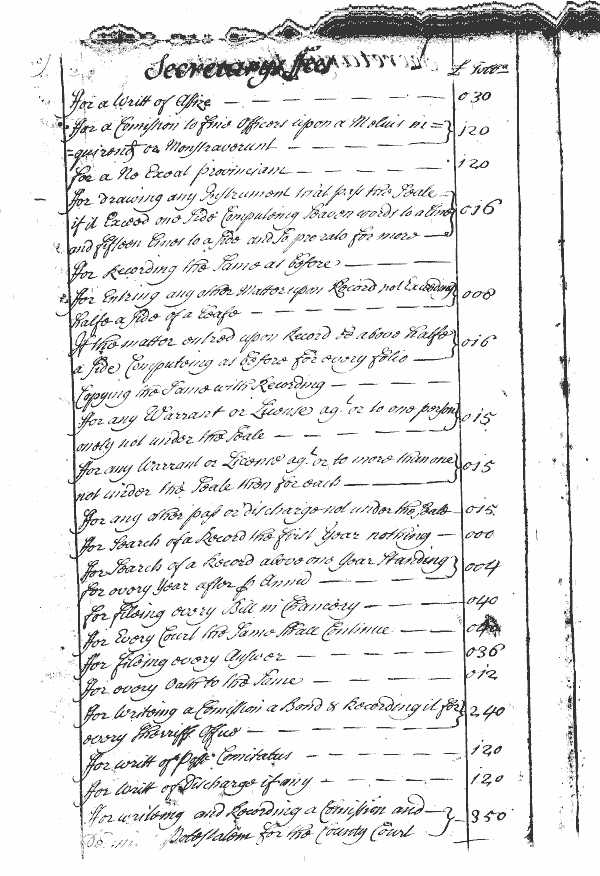 Secretarys ffees £ Tobbo
ffor a Writt of Assize 030
ffor a Comission to five Officers upon a Melius in=
=quirend or Monstraverunt 120
ffor a Ne Exeat provinciam 120
ffor drawing any Instrument that pass the Seale
if it Exceed one Side Computeing Seaven words to a line 016
and fifteen lines to a side and so pro rato for more
ffor Recording the Same as before
ffor Entring any other Matter upon Record not Exceeding 008
halfe a Side of a leafe
If the matter entred upon Record be above halfe 016
a Side Computeing as before for every folio
Copying the Same with Recording
ffor any Warrant or License agt. or to one person 015
onely not under the Seale
ffor any Warrant or License agt. or to more than one 015
not under the Seale then for each
ffor any other pass or discharge not under the Seale 015
ffor Search of a Record the first Year nothing 000
ffor Search of a Record above one Year Standing 004
for every Year after p Annu
ffor fileing every Bill in Chancery 040
ffor Every Court the Same Shall Continue
ffor fileing every Answer 036
ffor every Oath to the Same 012
ffor Writeing a Comission a Bond & Recording it for 240
every Sherriff Office
ffor writt of Posse Comitatus 120
ffor Writt of Discharge if any 120
ffor writeing and Recording a Comission and 350
Potestatem for the County Court